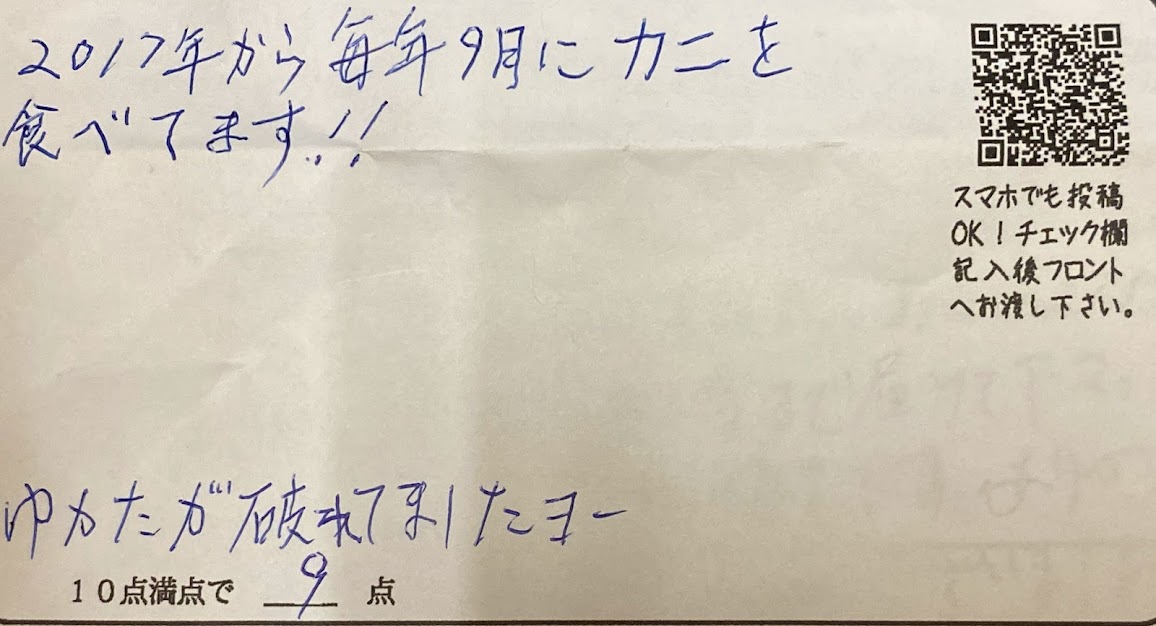 2017年から毎年9月にカニを
食べてます!!
スマホでも投稿
OK！チェック欄
記入後フロント
へお渡し下さい。
ゆかたが破れてましたヨー
10点満点で 9 点